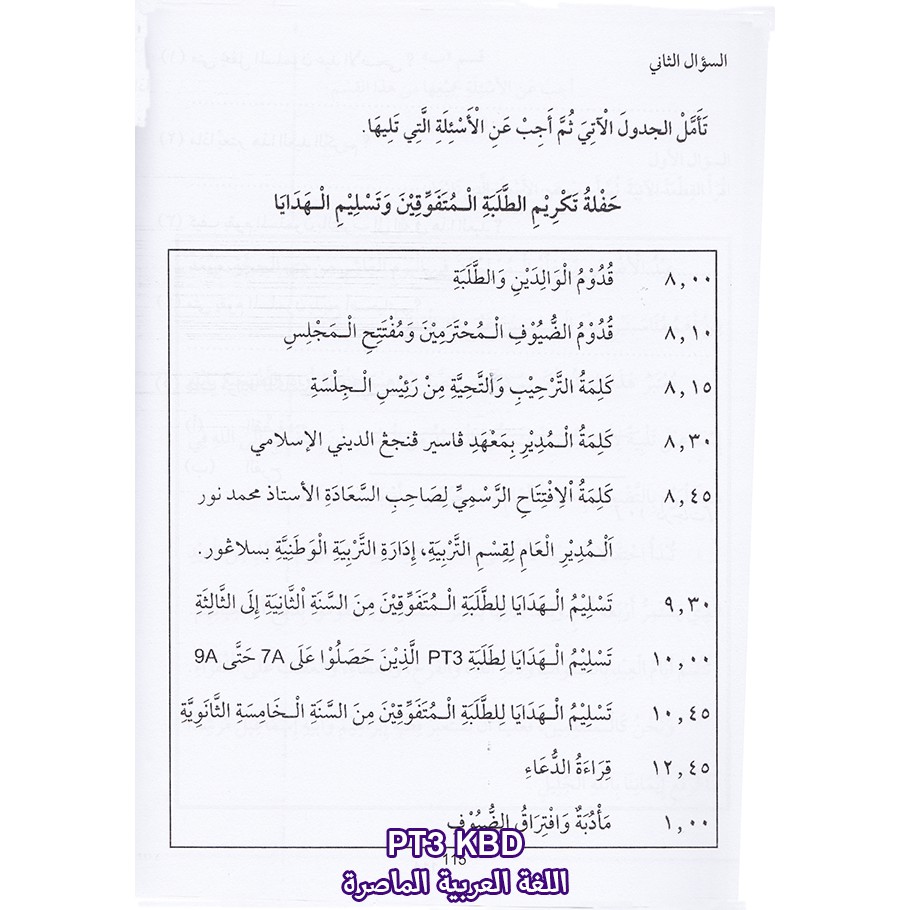 السؤال الثاني
تَأَمَّلْ الجدولَ الْآتِيَ ثُمَّ أَجِبْ عَنِ الْأَسْئِلَةِ الَّتِي تَلِيهَا.
حَفْلةُ تَكْرِيْمِ الطَّلَبَةِ الْـمُتَفَوِّقِيْنَ وَتَسْلِيْمِ الْـهَدَايَا
٨,٠٠ قُدُوْمُ الْوَالِدَيْنِ وَالطَّلَبَةِ
٨,١٠ قُدُوْمُ الضُّيُوْفِ الْـمُحْتَرَمِيْنَ وَمُفْتَتِحِ الْـمَجْلِسِ
٨,١٥ كَلِمَةُ التَّرْحِيْبِ وَاَلتَّحِيَّةِ مِنْ رَئِيْسِ الْـجِلْسَةِ
٨,٣٠ كَلِمَةُ الْـمُدِيْرِ بِمَعْهَدِ ڤاسير ڤنجڠ الديني الإسلامي
٨,٤٥ كَلِمَةُ اْلاِفْتِتَاحِ الرَّسْمِيِّ لِصَاحِبِ السَّعَادَةِ الأستاذ محمد نور
اَلْـمُدِيْرِ الْعَامِ لِقِسْمِ التَّرْبِيَةِ، إِدَارَةِ التَّرْبِيَةِ الْوَطَنِيَّةِ بسلاڠور.
٩,٣٠ تَسْلِيْمُ الْـهَدَايَا لِلطَّلَبَةِ الْـمُتَفَوِّقِيْنَ مِنَ السَّنَةِ اْلثَّانِيَةِ إِلَى الثَّالِثَةِ
١٠,٠٠ تَسْلِيْمُ الْـهَدَايَا لِطَلَبَةِ PT3 الَّذِيْنَ حَصَلُوْا عَلَى 7A حَتَّى 9A
١٠,٤٥ تَسْلِيْمُ الْـهَدَايَا لِلطَّلَبَةِ الْـمُتَفَوِّقِيْنَ مِنَ السَّنَةِ الْـخَامِسَةِ الثَّانَوِيَّةِ
١٢,٤٥ قِرَاءَةُ الدُّعَاءِ
١,٠٠ مَأْدُبَةٌ وَافْتِرَاقُ الضُّيُوْفِ
PT3 KBD
115
اللغة العربية الماصرة